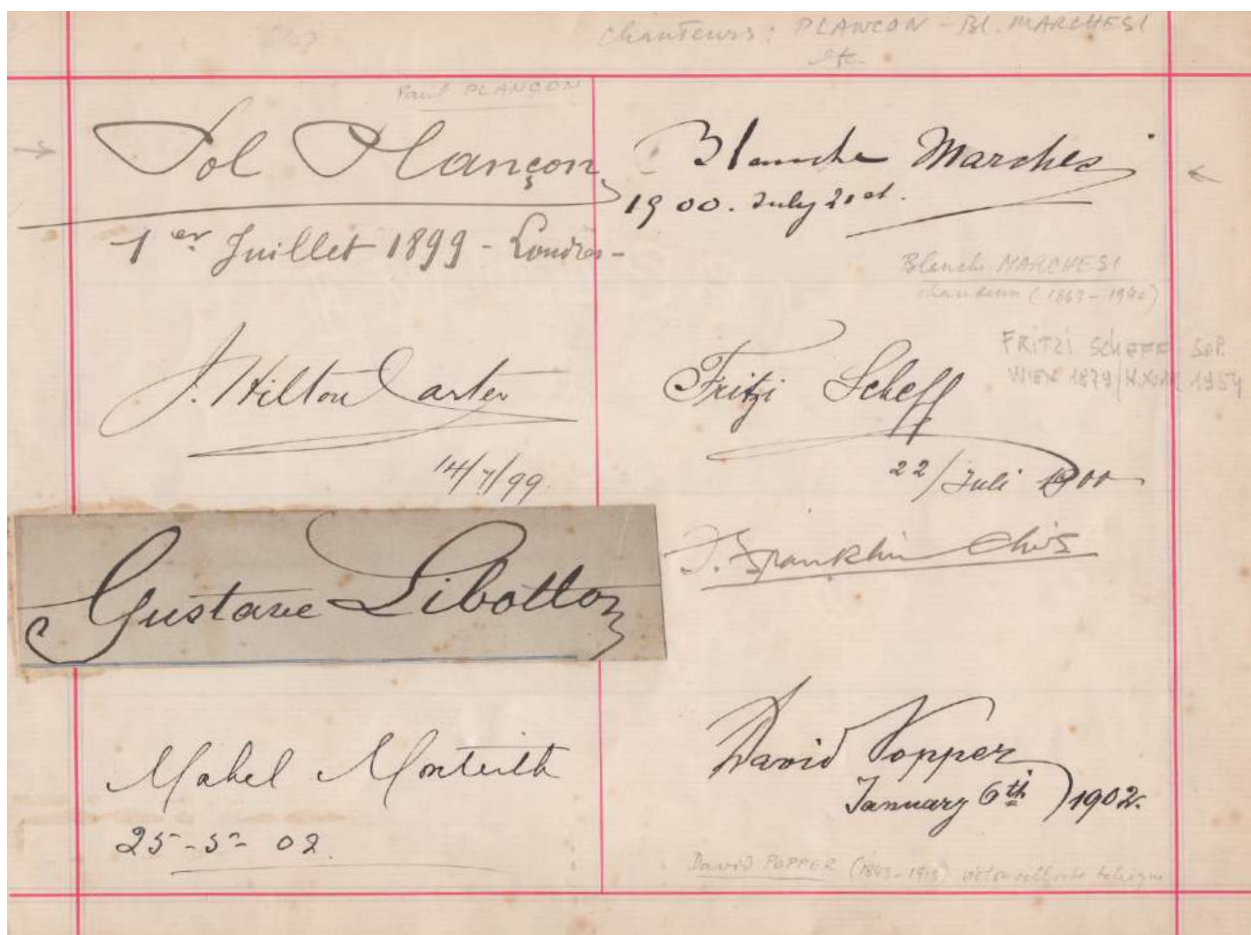 chanteurs: PLANCON - Bl. MARCHESI
etc.
Paul PLANÇON
Pol Plançon
1er Juillet 1899 - Londres -
J. Hilton Carter
14/7/99.
Gustave Libotton
Mabel Monteith
25-5-02.
Blanche Marchesi
1900. July 21st.
Blanche MARCHESI
chanteuse (1863-1940)
Fritzi Scheff
FRITZI SCHEFF SOP.
WIEN 1879/N.YORK 1954
22/Juli 1900
J. Franklin
David Popper
January 6th 1902.
David POPPER (1843-1913) violoncelliste tchèque